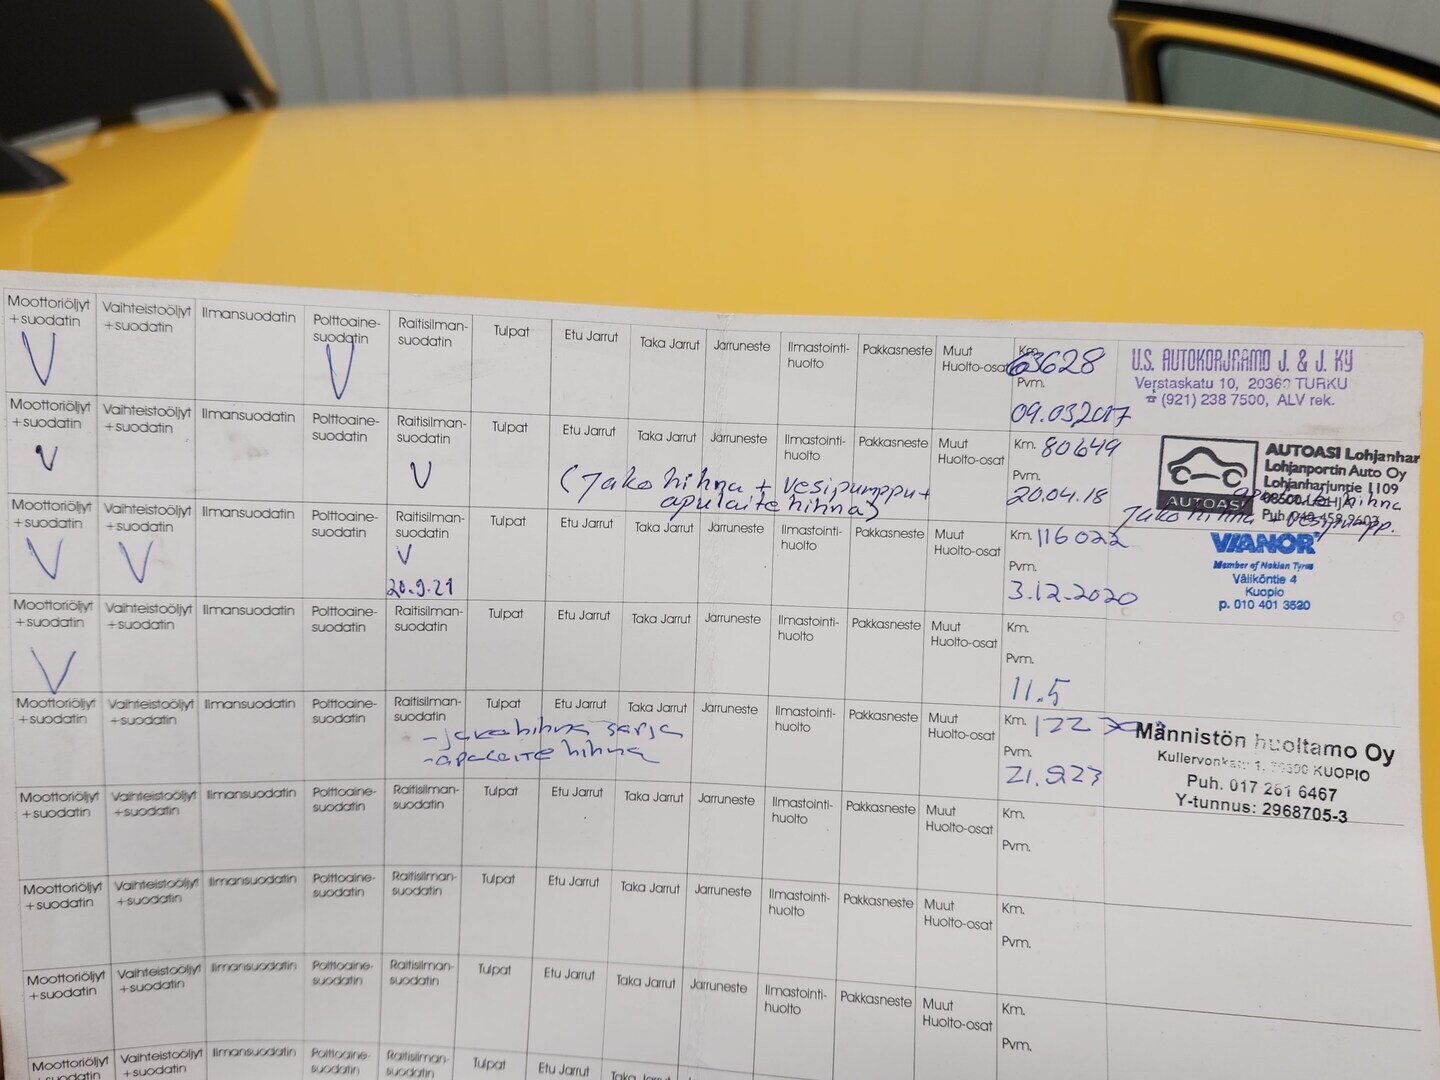 Moottoriöljyt +suodatin Vaihteistoöljyt +suodatin Ilmansuodatin Polttoaine-suodatin Raitisilman-suodatin Tulpat Etu Jarrut Taka Jarrut Jarruneste Ilmastointi-huolto Pakkasneste Muut Huolto-osat Km. 63628
V V
Pvm. 09.03.2017
U.S. AUTOKORJAAMO J. & J. KY
Verstaskatu 10, 20360 TURKU
☎ (921) 238 7500, ALV rek.
Moottoriöljyt +suodatin Vaihteistoöljyt +suodatin Ilmansuodatin Polttoaine-suodatin Raitisilman-suodatin Tulpat Etu Jarrut Taka Jarrut Jarruneste Ilmastointi-huolto Pakkasneste Muut Huolto-osat Km. 80649
V V
(Jako hihna + vesipumppu +
apulaitehihna)
Pvm. 20.04.18
AUTOASI
AUTOASI Lohjanhar
Lohjanportin Auto Oy
Lohjanharjuntie 1109
Jako hihna + vesipump.
Moottoriöljyt +suodatin Vaihteistoöljyt +suodatin Ilmansuodatin Polttoaine-suodatin Raitisilman-suodatin Tulpat Etu Jarrut Taka Jarrut Jarruneste Ilmastointi-huolto Pakkasneste Muut Huolto-osat Km. 116022
V V V
20.9.21
Pvm. 3.12.2020
VIANOR
Member of Nokian Tyres
Väliköntie 4
Kuopio
p. 010 401 3520
Moottoriöljyt +suodatin Vaihteistoöljyt +suodatin Ilmansuodatin Polttoaine-suodatin Raitisilman-suodatin Tulpat Etu Jarrut Taka Jarrut Jarruneste Ilmastointi-huolto Pakkasneste Muut Huolto-osat Km.
V
Pvm. 11.5
Moottoriöljyt +suodatin Vaihteistoöljyt +suodatin Ilmansuodatin Polttoaine-suodatin Raitisilman-suodatin Tulpat Etu Jarrut Taka Jarrut Jarruneste Ilmastointi-huolto Pakkasneste Muut Huolto-osat Km. 122
- jakohihna sarja
- apulaite hihna
Pvm. 21.923
Männistön huoltamo Oy
Kullervonkatu 1, KUOPIO
Puh. 017 261 6467
Y-tunnus: 2968705-3
Moottoriöljyt +suodatin Vaihteistoöljyt +suodatin Ilmansuodatin Polttoaine-suodatin Raitisilman-suodatin Tulpat Etu Jarrut Taka Jarrut Jarruneste Ilmastointi-huolto Pakkasneste Muut Huolto-osat Km.
Pvm.
Moottoriöljyt +suodatin Vaihteistoöljyt +suodatin Ilmansuodatin Polttoaine-suodatin Raitisilman-suodatin Tulpat Etu Jarrut Taka Jarrut Jarruneste Ilmastointi-huolto Pakkasneste Muut Huolto-osat Km.
Pvm.
Moottoriöljyt +suodatin Vaihteistoöljyt +suodatin Ilmansuodatin Polttoaine-suodatin Raitisilman-suodatin Tulpat Etu Jarrut Taka Jarrut Jarruneste Ilmastointi-huolto Pakkasneste Muut Huolto-osat Km.
Pvm.
Moottoriöljyt +suodatin Vaihteistoöljyt +suodatin Ilmansuodatin Polttoaine-suodatin Raitisilman-suodatin Tulpat Etu Jarrut Taka Jarrut